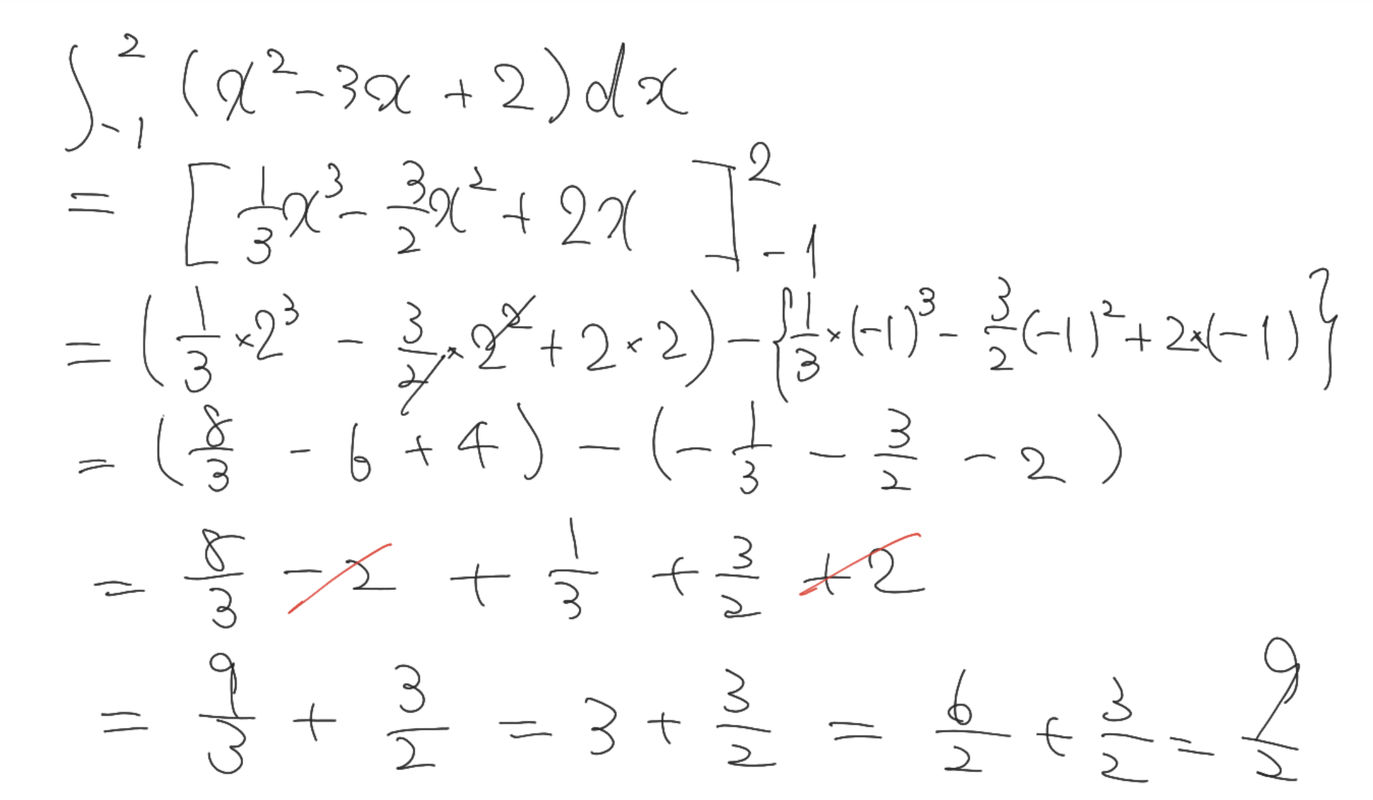 ∫₋₁² (x² - 3x + 2) dx
= [ 1/3 x³ - 3/2 x² + 2x ]₋₁²
= ( 1/3 × 2³ - 3/2 × 2² + 2 × 2 ) - { 1/3 × (-1)³ - 3/2 (-1)² + 2 × (-1) }
= ( 8/3 - 6 + 4 ) - ( - 1/3 - 3/2 - 2 )
= 8/3 - 2 + 1/3 + 3/2 + 2
= 9/3 + 3/2 = 3 + 3/2 = 6/2 + 3/2 = 9/2